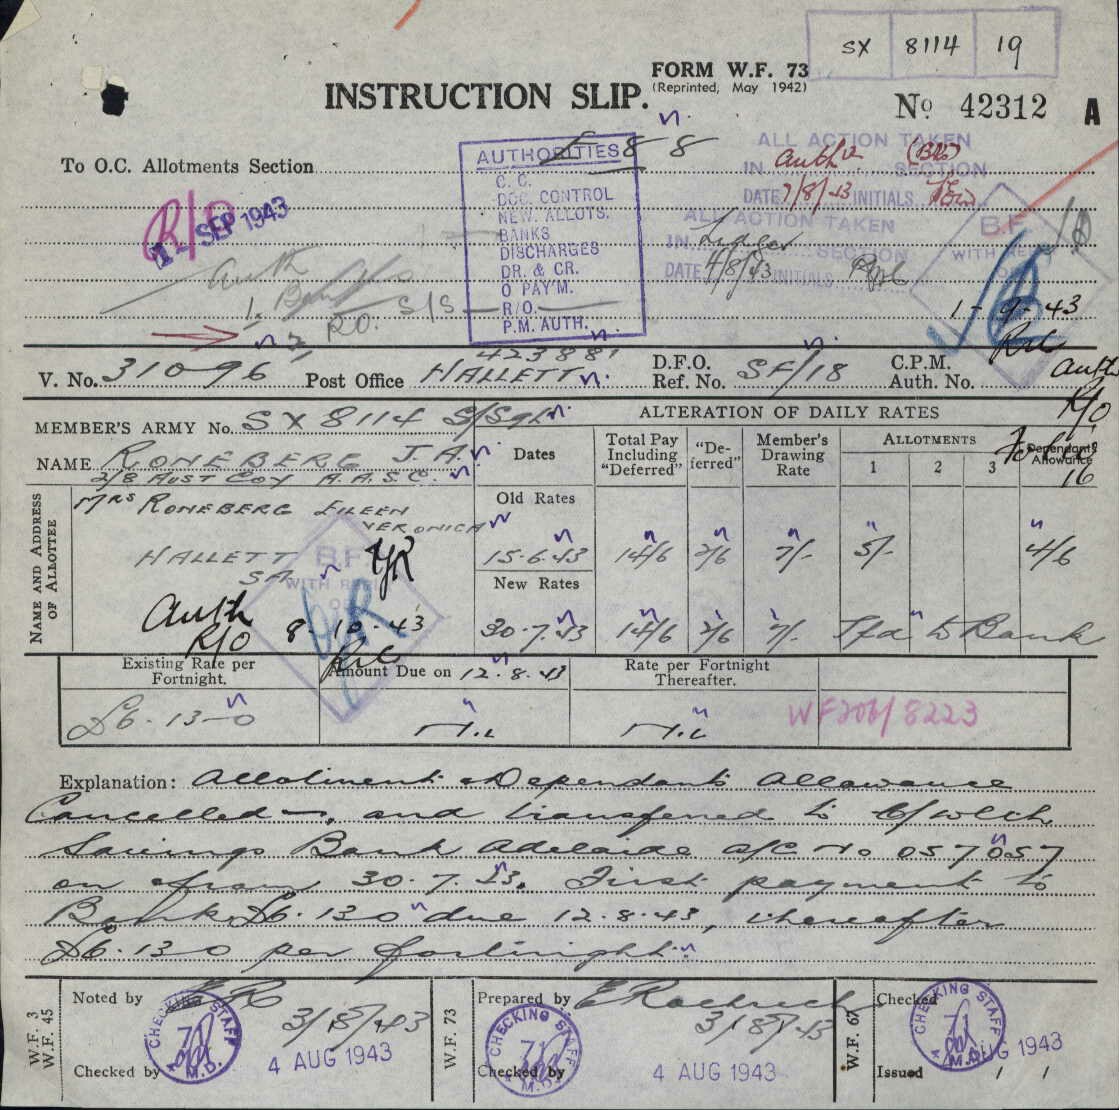 SX 8114 19
FORM W.F. 73
(Reprinted, May 1942)
INSTRUCTION SLIP.
No 42312 A
To O.C. Allotments Section
8 8
AUTHORITIES
C. C.
DOC. CONTROL
NEW. ALLOTS.
BANKS
DISCHARGES
DR. & CR.
O PAY'M.
R/O.
P.M. AUTH.
ALL ACTION TAKEN
IN Auth SECTION
DATE 7/8/43 INITIALS
ALL ACTION TAKEN
IN Ledger SECTION
DATE 4/8/43 INITIALS
R/O
1 - SEP 1943
Auth
1.
R.O. S/S
BF
1-9-43
Auth
R/O
V. No. 310796 Post Office HALLETT 423881 D.F.O. Ref. No. SF/18 C.P.M. Auth. No.
MEMBER'S ARMY No. SX 8114 S/Sgt
NAME RONEBERG J.A.
2/8 AUST COY A.A.S.C.
ALTERATION OF DAILY RATES
Dates
Total Pay Including "Deferred"
"Deferred"
Member's Drawing Rate
ALLOTMENTS
1 2 3
Dependants' Allowance
16
NAME AND ADDRESS OF ALLOTTEE
MRS RONEBERG EILEEN
VERONICA
HALLETT
SA
Auth
R/O
BF
8-10-43
Old Rates
15.6.43 14/6 2/6 7/- 5/- 4/6
New Rates
30.7.43 14/6 2/6 7/- Tfd to Bank
Existing Rate per Fortnight.
Amount Due on 12.8.43
Rate per Fortnight Thereafter.
£6.13-0 Nil Nil WF206/8223
Explanation: Allotment & Dependants Allowance
Cancelled, and transferred to C/Wlth
Savings Bank Adelaide A/C. No 057057
on & from 30.7.43. First payment to
Bank £6.13 0 due 12.8.43, thereafter
£6.13 0 per fortnight.
W.F. 3
W.F. 45
Noted by ER
3/8/43
Checked by
CHECKING STAFF
71
M.D.
4 AUG 1943
W.F. 73
Prepared by
3/8/43
Checked by
CHECKING STAFF
71
M.D.
4 AUG 1943
W.F. 67
Checked
CHECKING STAFF
71
M.D.
4 AUG 1943
Issued 1 1